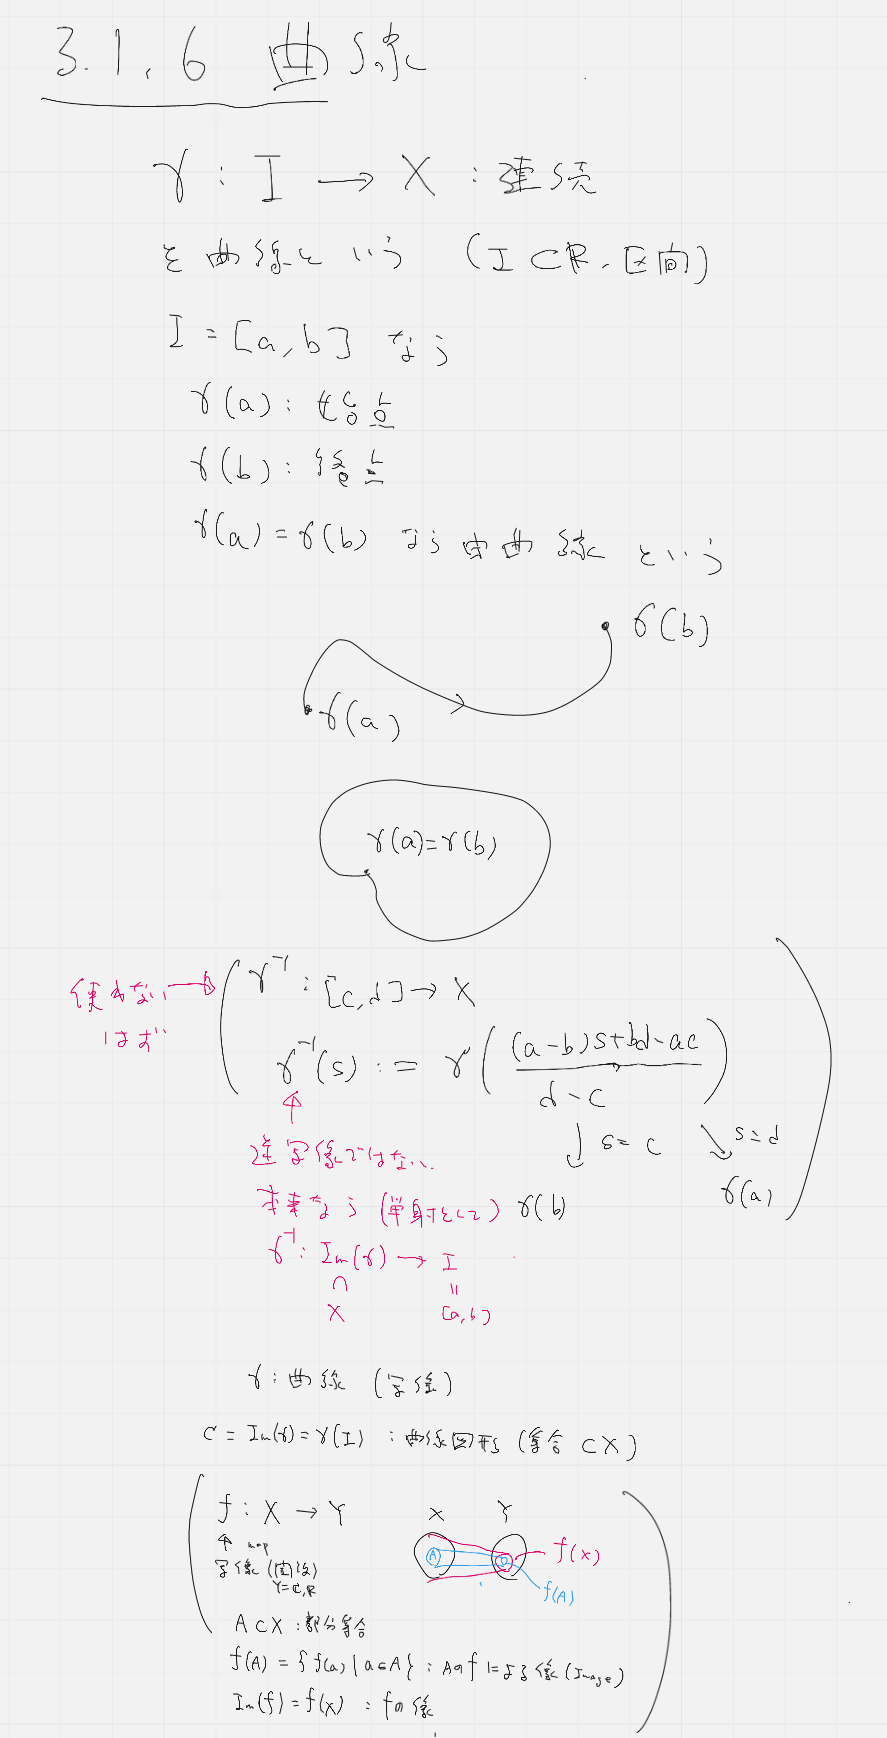 3.1.6 曲線
γ : I → X : 連続
を曲線という (I ⊂ ℝ, 区間)
I = [a, b] なら
γ(a) : 始点
γ(b) : 終点
γ(a) = γ(b) なら 曲線 という
γ(b)
γ(a)
γ(a)=γ(b)
使わない → ( γ⁻¹ : [c, d] → X
はず
γ⁻¹(s) := γ( ((a-b)s+bd-ac) / (d-c) ) )
↑
↓ s=c ↘ s=d
逆写像ではない.
本来なら (単射として) γ(b) γ(a)
γ⁻¹ : Im(γ) → I
∩ ॥
X [a, b]
γ : 曲線 (写像)
C = Im(γ) = γ(I) : 曲線図形 (集合 ⊂ X)
f : X → Y
↑ map
写像 (関数)
Y=ℂ,ℝ
X Y
A
f(X)
f(A)
A ⊂ X : 部分集合
f(A) = { f(a) | a∈A } : Aのfによる像 (Image)
Im(f) = f(X) : fの像